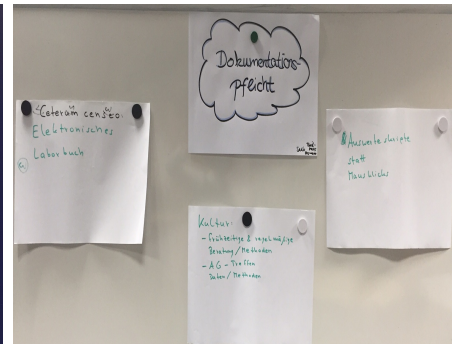 Dokumentations-
pflicht
"Ceterum censeo:
Elektronisches
Laborbuch
Auswerteskripte
statt
Mausklicks
Kultur:
- Frühzeitige & regelmäßige
Beratung/Methoden
- AG-Treffen
Daten/Methoden